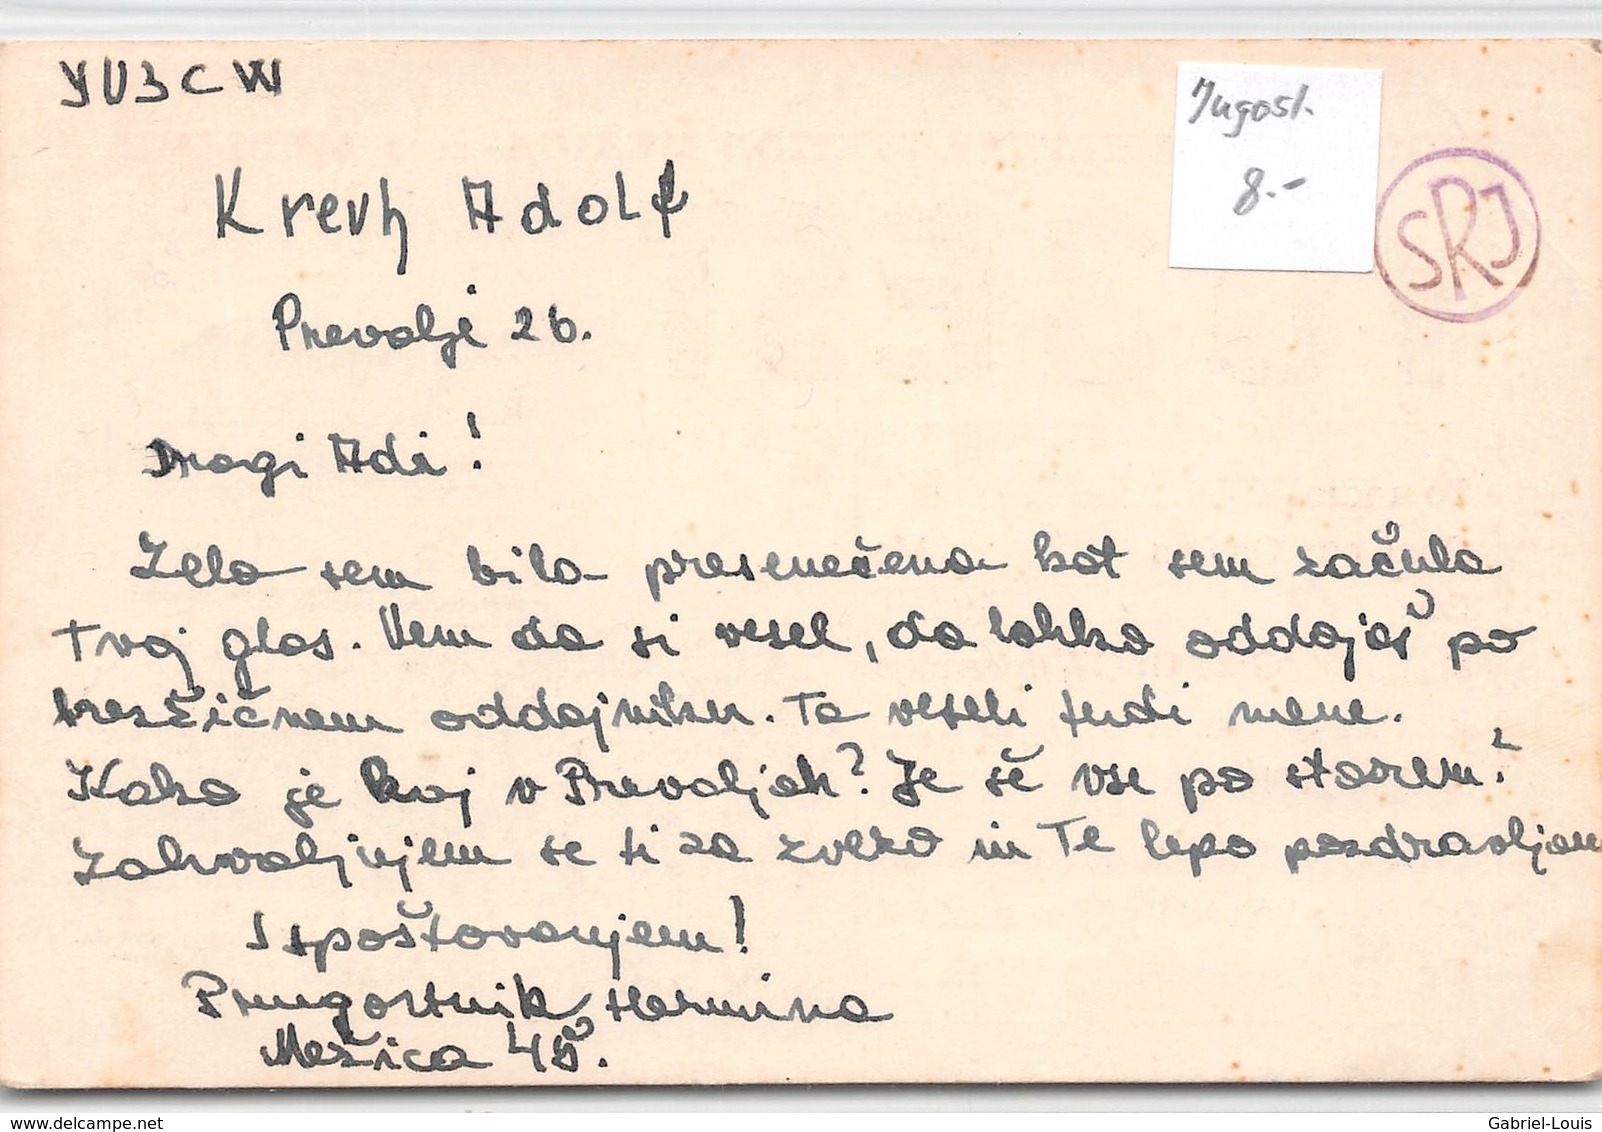 YU3CW
Jugosl.
8.-
SRJ
Krevh Adolf
Prevalje 26.
Dragi Adi!
Zelo sem bila presenečena kot sem začula
tvoj glas. Vem da si vesel, da lahko oddajaš po
brezžičnem oddajniku. To veseli tudi mene.
Kako je kaj v Prevaljah? Je še vse po starem?
Zahvaljujem se ti za zvezo in Te lepo pozdravljam
S spoštovanjem!
Hermina
Mežica
delcampe.net
Gabriel-Louis